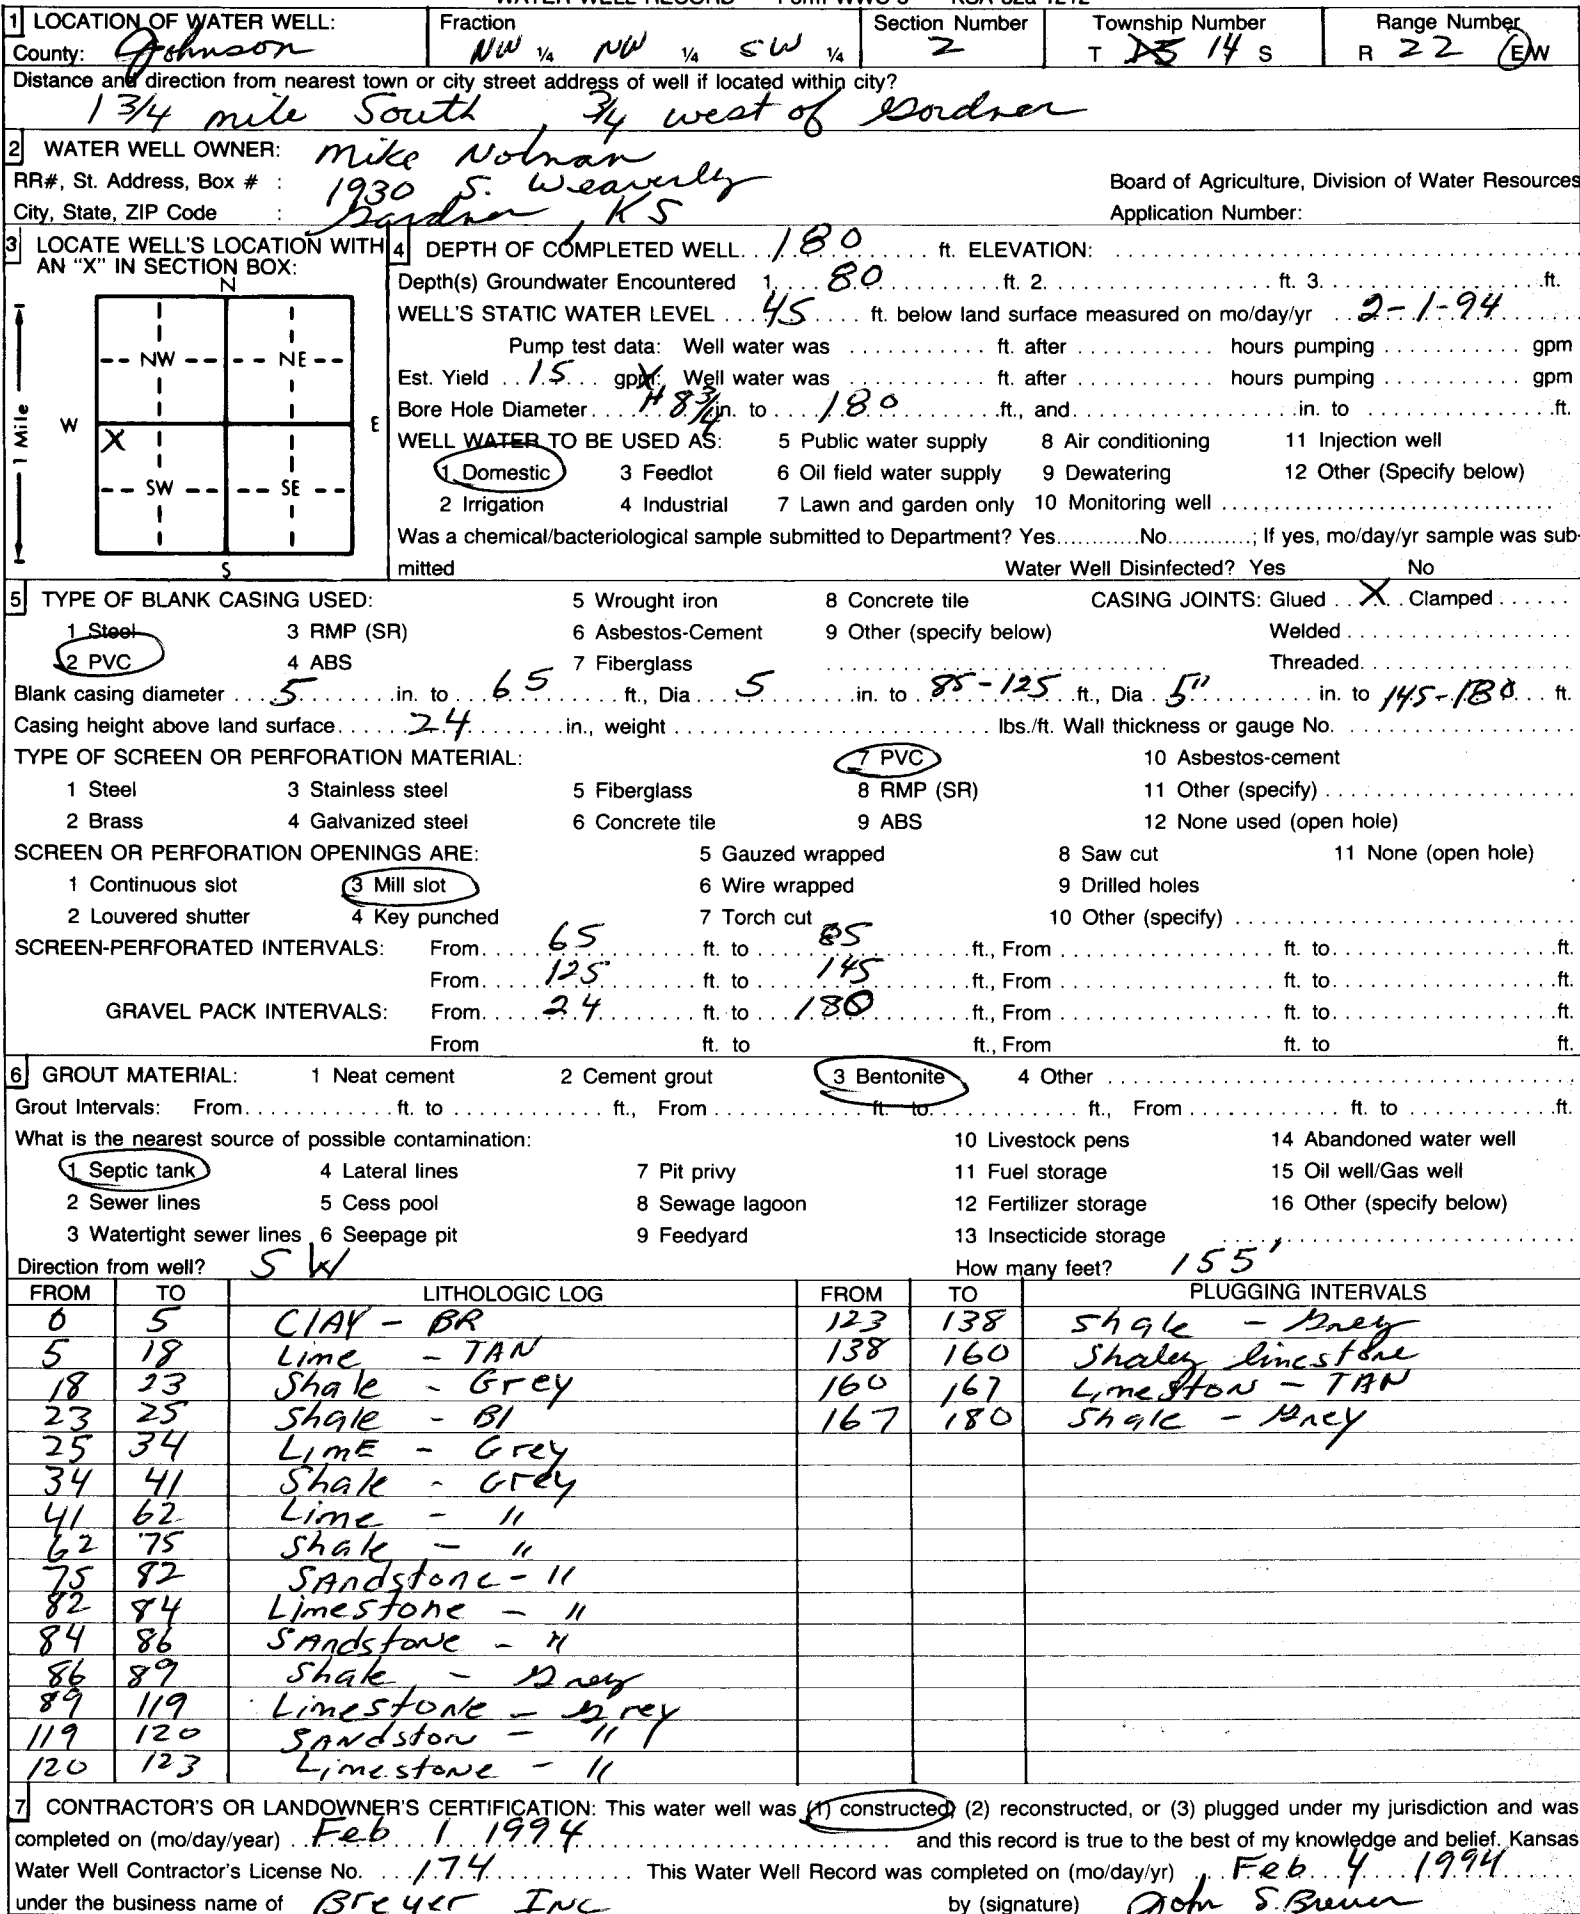 WATER WELL RECORD Form WWC-5 KSA 82a-1212
1 LOCATION OF WATER WELL: Fraction Section Number Township Number Range Number
County: Johnson NW ¼ NW ¼ SW ¼ 2 T 14 S R 22 E/W
Distance and direction from nearest town or city street address of well if located within city?
1 3/4 mile South , 3/4 west of Gardner
2 WATER WELL OWNER: Mike Nolman
RR#, St. Address, Box # : 1930 S. Weaverly Board of Agriculture, Division of Water Resources
City, State, ZIP Code : Gardner, KS Application Number:
3 LOCATE WELL'S LOCATION WITH AN "X" IN SECTION BOX:
N
NW NE
1 Mile
W E
X
SW SE
S
4 DEPTH OF COMPLETED WELL. . . 180 . . . ft. ELEVATION: . . . . . .
Depth(s) Groundwater Encountered 1. . . . 80 . . . . ft. 2. . . . . . ft. 3. . . . . . ft.
WELL'S STATIC WATER LEVEL . . . 45 . . . ft. below land surface measured on mo/day/yr . . 2-1-94
Pump test data: Well water was . . . . . . ft. after . . . . . . hours pumping . . . . . . gpm
Est. Yield . . 15 . . . gpm: Well water was . . . . . . ft. after . . . . . . hours pumping . . . . . . gpm
Bore Hole Diameter . . . . 8 3/4 in. to . . . . 180 . . . . ft., and . . . . . . in. to . . . . . . ft.
WELL WATER TO BE USED AS: 5 Public water supply 8 Air conditioning 11 Injection well
1 Domestic 3 Feedlot 6 Oil field water supply 9 Dewatering 12 Other (Specify below)
2 Irrigation 4 Industrial 7 Lawn and garden only 10 Monitoring well . . . . . .
Was a chemical/bacteriological sample submitted to Department? Yes. . . . . .No. . . . . .; If yes, mo/day/yr sample was sub-
mitted Water Well Disinfected? Yes No
5 TYPE OF BLANK CASING USED: 5 Wrought iron 8 Concrete tile CASING JOINTS: Glued . . X . . Clamped . . . . . .
1 Steel 3 RMP (SR) 6 Asbestos-Cement 9 Other (specify below) Welded . . . . . .
2 PVC 4 ABS 7 Fiberglass . . . . . . Threaded. . . . . .
Blank casing diameter . . . 5 . . . in. to . . . 65 . . . ft., Dia . . . 5 . . . in. to . . 85-125 . . ft., Dia . 5" . . . in. to 145-180 . . . ft.
Casing height above land surface. . . . . 24 . . . . . in., weight . . . . . . lbs./ft. Wall thickness or gauge No. . . . . . .
TYPE OF SCREEN OR PERFORATION MATERIAL: 7 PVC 10 Asbestos-cement
1 Steel 3 Stainless steel 5 Fiberglass 8 RMP (SR) 11 Other (specify) . . . . . .
2 Brass 4 Galvanized steel 6 Concrete tile 9 ABS 12 None used (open hole)
SCREEN OR PERFORATION OPENINGS ARE: 5 Gauzed wrapped 8 Saw cut 11 None (open hole)
1 Continuous slot 3 Mill slot 6 Wire wrapped 9 Drilled holes
2 Louvered shutter 4 Key punched 7 Torch cut 10 Other (specify) . . . . . .
SCREEN-PERFORATED INTERVALS: From. . . . 65 . . . . ft. to . . . . 85 . . . . ft., From . . . . . . ft. to. . . . . . ft.
From. . . . 125 . . . . ft. to . . . . 145 . . . . ft., From . . . . . . ft. to. . . . . . ft.
GRAVEL PACK INTERVALS: From. . . . 24 . . . . ft. to . . . 180 . . . . ft., From . . . . . . ft. to. . . . . . ft.
From ft. to ft., From ft. to ft.
6 GROUT MATERIAL: 1 Neat cement 2 Cement grout 3 Bentonite 4 Other . . . . . .
Grout Intervals: From. . . . . . ft. to . . . . . . ft., From . . . . . . ft. to. . . . . . ft., From . . . . . . ft. to . . . . . . ft.
What is the nearest source of possible contamination: 10 Livestock pens 14 Abandoned water well
1 Septic tank 4 Lateral lines 7 Pit privy 11 Fuel storage 15 Oil well/Gas well
2 Sewer lines 5 Cess pool 8 Sewage lagoon 12 Fertilizer storage 16 Other (specify below)
3 Watertight sewer lines 6 Seepage pit 9 Feedyard 13 Insecticide storage . . . . . .
Direction from well? SW How many feet? 155'
FROM TO LITHOLOGIC LOG FROM TO PLUGGING INTERVALS
0 5 CLAY - BR 123 138 Shale - Grey
5 18 Lime - TAN 138 160 Shaley limestone
18 23 Shale - Grey 160 167 LimeSton - TAN
23 25 Shale - Bl 167 180 Shale - Grey
25 34 LimE - Grey
34 41 Shale - Grey
41 62 Lime - "
62 75 Shale - "
75 82 SAndstone - "
82 84 Limestone - "
84 86 SAndstone - "
86 89 Shale - Grey
89 119 Limestone - Grey
119 120 SANdston - "
120 123 Limestone - "
7 CONTRACTOR'S OR LANDOWNER'S CERTIFICATION: This water well was (1) constructed, (2) reconstructed, or (3) plugged under my jurisdiction and was
completed on (mo/day/year) . . Feb 1 1994 . . . . . . and this record is true to the best of my knowledge and belief. Kansas
Water Well Contractor's License No. . . . 174 . . . . . . This Water Well Record was completed on (mo/day/yr) . . Feb 4 1994
under the business name of Breuer Inc by (signature) John S. Breuer